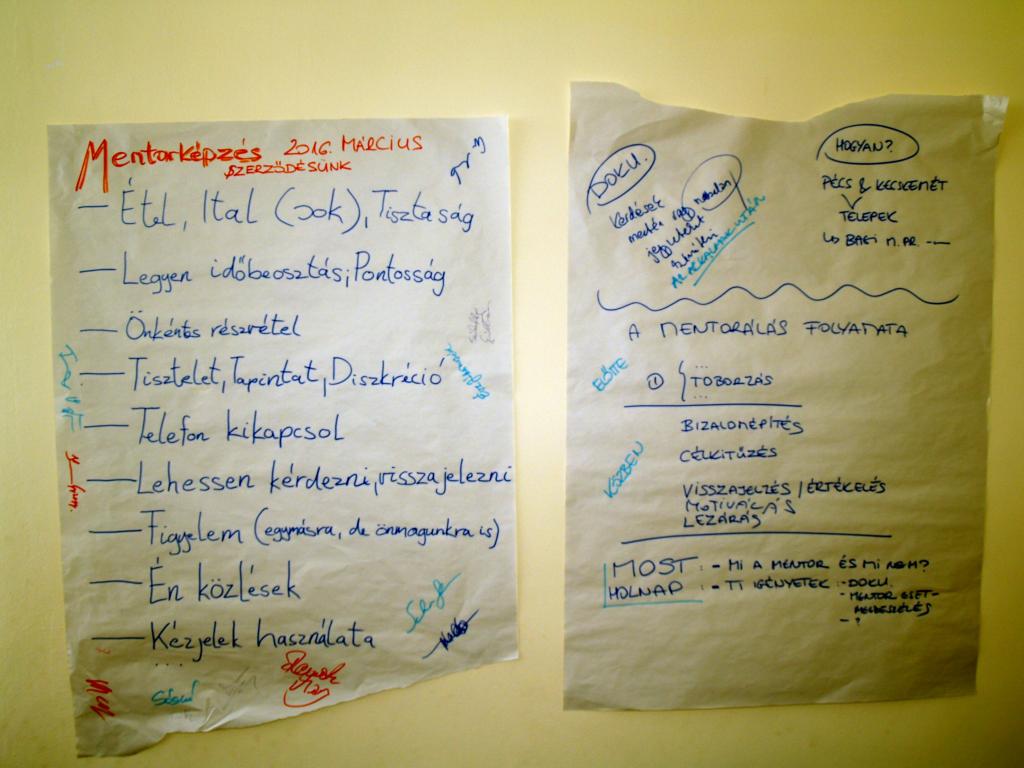 Mentorképzés 2016. MÁRCIUS
SZERZŐDÉSÜNK
— Étel, Ital (sok), Tisztaság
— Legyen időbeosztás, Pontosság
— Önkéntes részvétel
— Tisztelet, Tapintat, Diszkréció
— Telefon kikapcsol
— Lehessen kérdezni, visszajelezni
— Figyelem (egymásra, de önmagunkra is)
— Én közlések
— Kézjelek használata
...
DOKU.
Kérdések
mentén
AZ ALKALMAK UTÁN
HOGYAN?
PÉCS & KECSKEMÉT
TELEPEK
A MENTORÁLÁS FOLYAMATA
ELŐTTE
① TOBORZÁS
KÖZBEN
BIZALOMÉPÍTÉS
CÉLKITŰZÉS
VISSZAJELZÉS / ÉRTÉKELÉS
MOTIVÁLÁS
LEZÁRÁS
MOST: - MI A MENTOR ÉS MI NEM?
HOLNAP: - TI IGÉNYETEK: - DOKU.
- MENTOR ESET-
MEGBESZÉLÉS
- ?